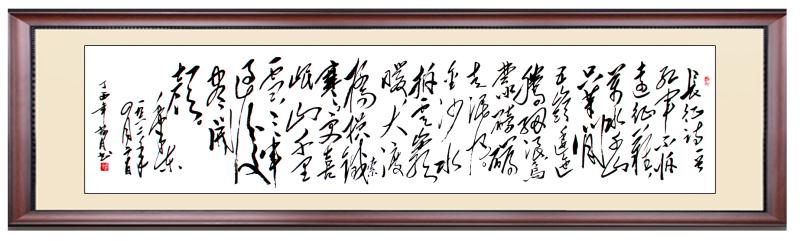 长征诗一首
红军不怕
远征难
万水千山
只等闲
五岭逶迤
腾细浪乌
蒙磅礴
走泥丸
金沙水
拍云崖
暖大渡
桥横铁索
寒更喜
岷山千里
雪三军
过后
尽开
颜
毛泽东
一九三五年
丁酉年